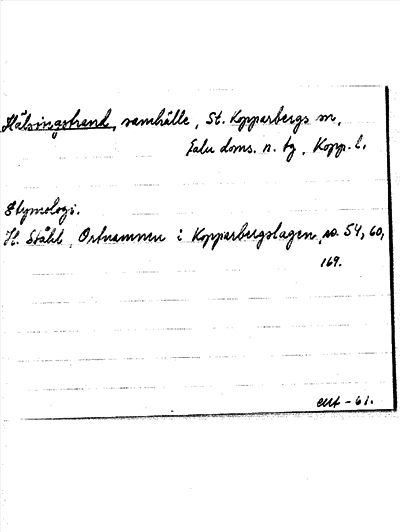 Hälsingstrand, samhälle, St. Kopparbergs sn,
Falu doms. n. tg, Kopp. l.
Etymologi.
H. Ståhl, Ortnamnen i Kopparbergslagen, ss. 54, 60,
169.
-61.